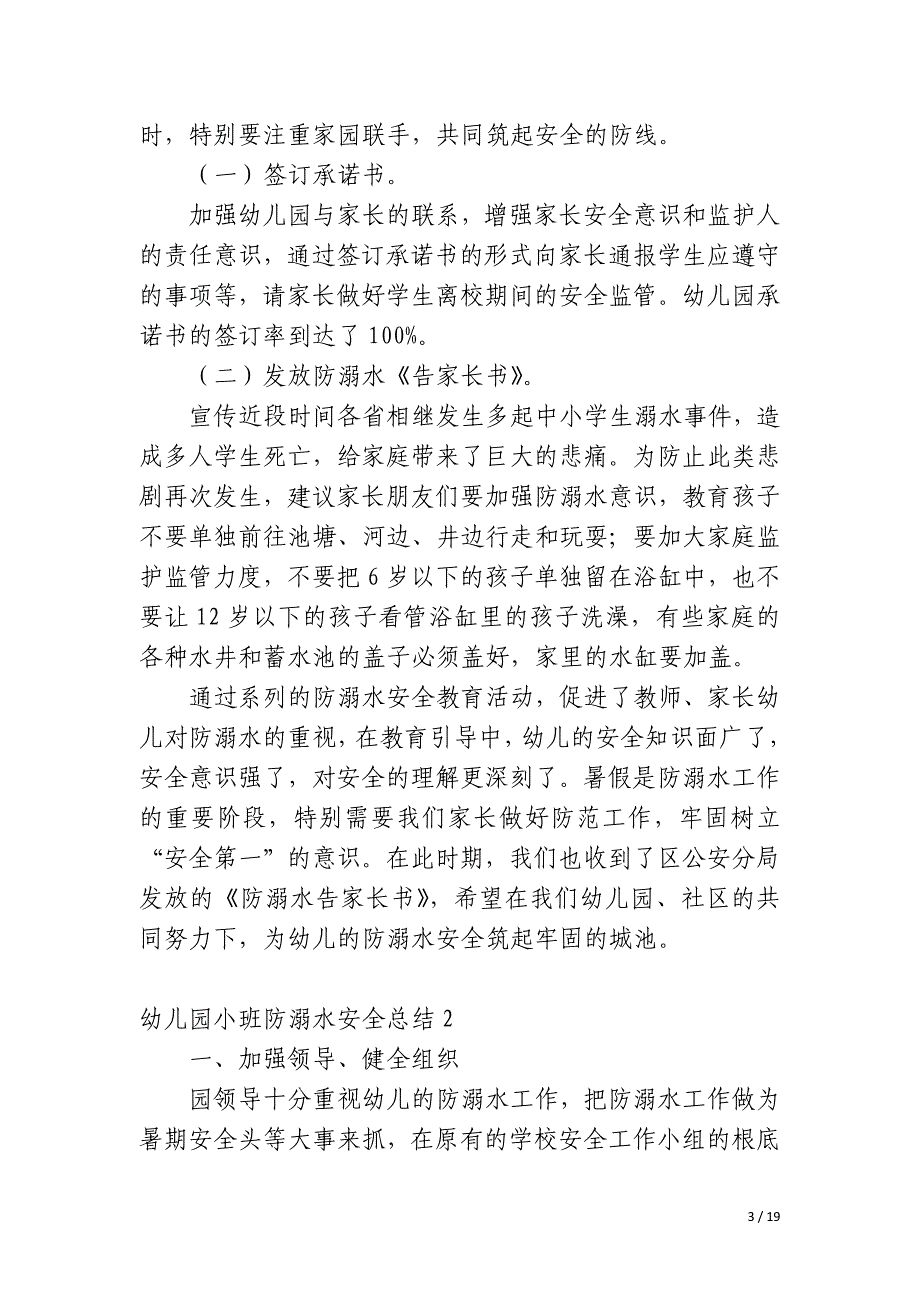 时，特别要注重家园联手，共同筑起安全的防线。
（一）签订承诺书。
加强幼儿园与家长的联系，增强家长安全意识和监护人
的责任意识，通过签订承诺书的形式向家长通报学生应遵守
的事项等，请家长做好学生离校期间的安全监管。幼儿园承
诺书的签订率到达了 100%。
（二）发放防溺水《告家长书》。
宣传近段时间各省相继发生多起中小学生溺水事件，造
成多人学生死亡，给家庭带来了巨大的悲痛。为防止此类悲
剧再次发生，建议家长朋友们要加强防溺水意识，教育孩子
不要单独前往池塘、河边、井边行走和玩耍；要加大家庭监
护监管力度，不要把 6 岁以下的孩子单独留在浴缸中，也不
要让 12 岁以下的孩子看管浴缸里的孩子洗澡，有些家庭的
各种水井和蓄水池的盖子必须盖好，家里的水缸要加盖。
通过系列的防溺水安全教育活动，促进了教师、家长幼
儿对防溺水的重视，在教育引导中，幼儿的安全知识面广了，
安全意识强了，对安全的理解更深刻了。暑假是防溺水工作
的重要阶段，特别需要我们家长做好防范工作，牢固树立
“安全第一”的意识。在此时期，我们也收到了区公安分局
发放的《防溺水告家长书》，希望在我们幼儿园、社区的共
同努力下，为幼儿的防溺水安全筑起牢固的城池。
幼儿园小班防溺水安全总结 2
一、加强领导、健全组织
园领导十分重视幼儿的防溺水工作，把防溺水工作做为
暑期安全头等大事来抓，在原有的学校安全工作小组的根底
3 / 19